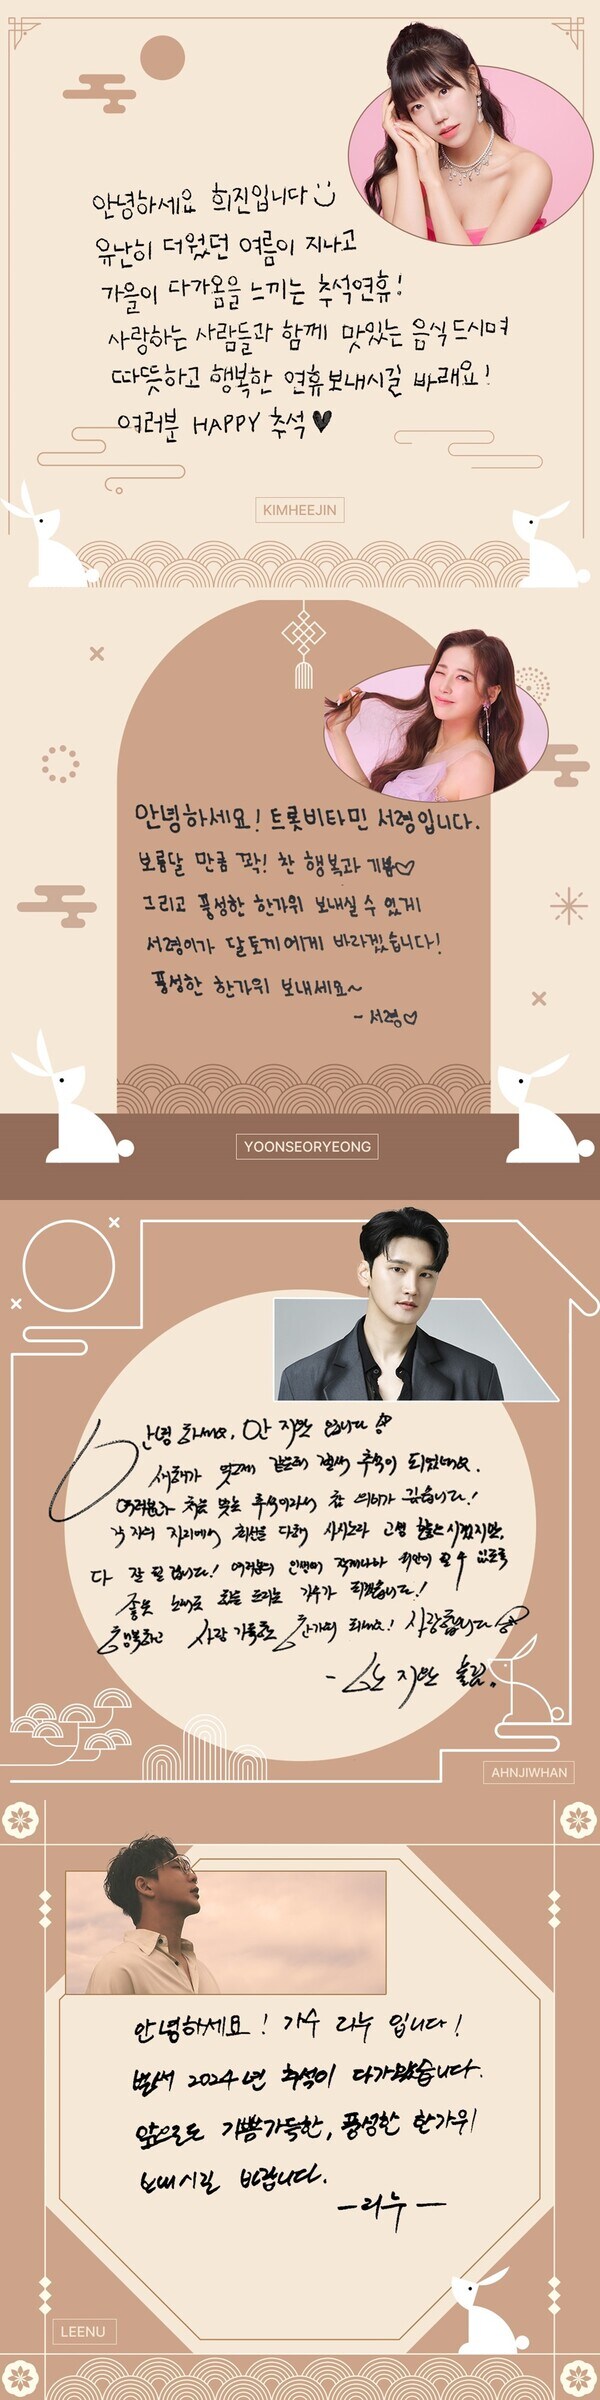 안녕하세요 희진입니다
유난히 더웠던 여름이 지나고
가을이 다가옴을 느끼는 추석연휴!
사랑하는 사람들과 함께 맛있는 음식드시며
따뜻하고 행복한 연휴보내시길 바래요!
여러분 HAPPY 추석♥
KIMHEEJIN
안녕하세요! 트롯비타민 서령입니다.
보름달 만큼 꽉! 찬 행복과 기쁨♡
그리고 풍성한 한가위 보내실 수 있게
서령이가 달토끼에게 바라겠습니다!
풍성한 한가위 보내세요~
- 서령♡
YOONSEORYEONG
안녕하세요, 안지환입니다
새해가 엊그제 같은데 벌써 추석이 되었네요.
여러분과 처음 맞는 추석이라서 참 의미가 깊습니다!
각자의 자리에서 최선을 다해 사시느라 고생 많으시겠지만,
다 잘 될 겁니다! 여러분의 인생에 작게나마 위안이 될 수 있도록
좋은 노래로 힘을 드리는 가수가 되겠습니다!
행복하고 사랑 가득한 한가위 되세요! 사랑합니다
- 안지환 올림.
AHNJIWHAN
안녕하세요! 가수 리누 입니다!
벌써 2024년 추석이 다가왔습니다.
앞으로도 기쁨가득한, 풍성한 한가위
보내시길 바랍니다.
-리누-
LEENU